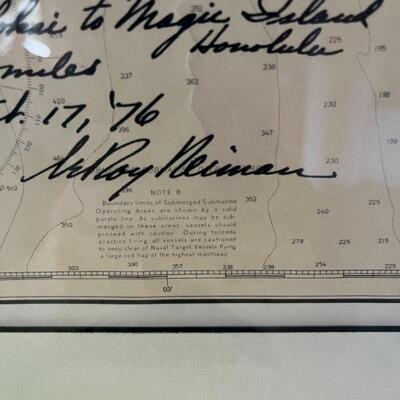 okai to Magic Island
Honolulu
miles
17, '76
LeRoy Neiman
NOTE B
Boundary limits of Submerged Submarine
Operating Areas are shown by a solid
purple line. As submarines may be sub-
merged in these areas, vessels should
proceed with caution. During torpedo
practice firing, all vessels are cautioned
to keep clear of Naval Target Vessels flying
a large red flag at the highest masthead.
352
235
225
323
322
396
225
510
396
338
230
232
279
225
214
303
390
357
338
316
289
225
05'